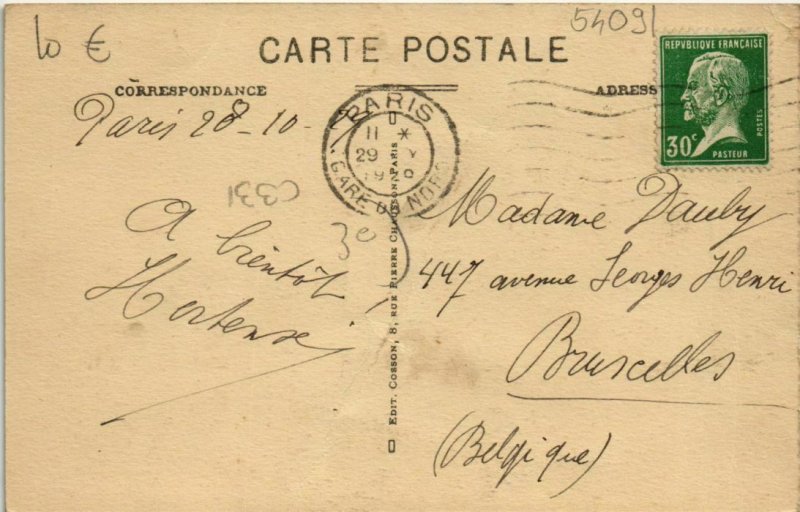 10 €
54091
CARTE POSTALE
CORRESPONDANCE
ADRESS
REPVBLIQUE FRANÇAISE
30c
POSTES
PASTEUR
PARIS
11 *
29
19
GARE DU NORD
Paris 28-10-
C331
3e
A bientôt
Hortense
EDIT. COSSON, 8, RUE PIERRE CHAUSSON, PARIS
Madame Dauby
447 avenue Georges Henri
Bruxelles
(Belgique)